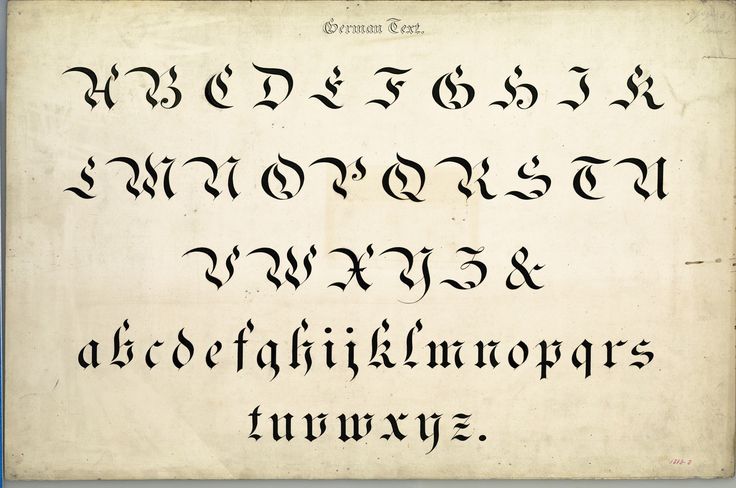 German Text.
A B C D E F G H I K
L M N O P Q R S T U
V W X Y Z &
a b c d e f g h i j k l m n o p q r s
t u v w x y z.